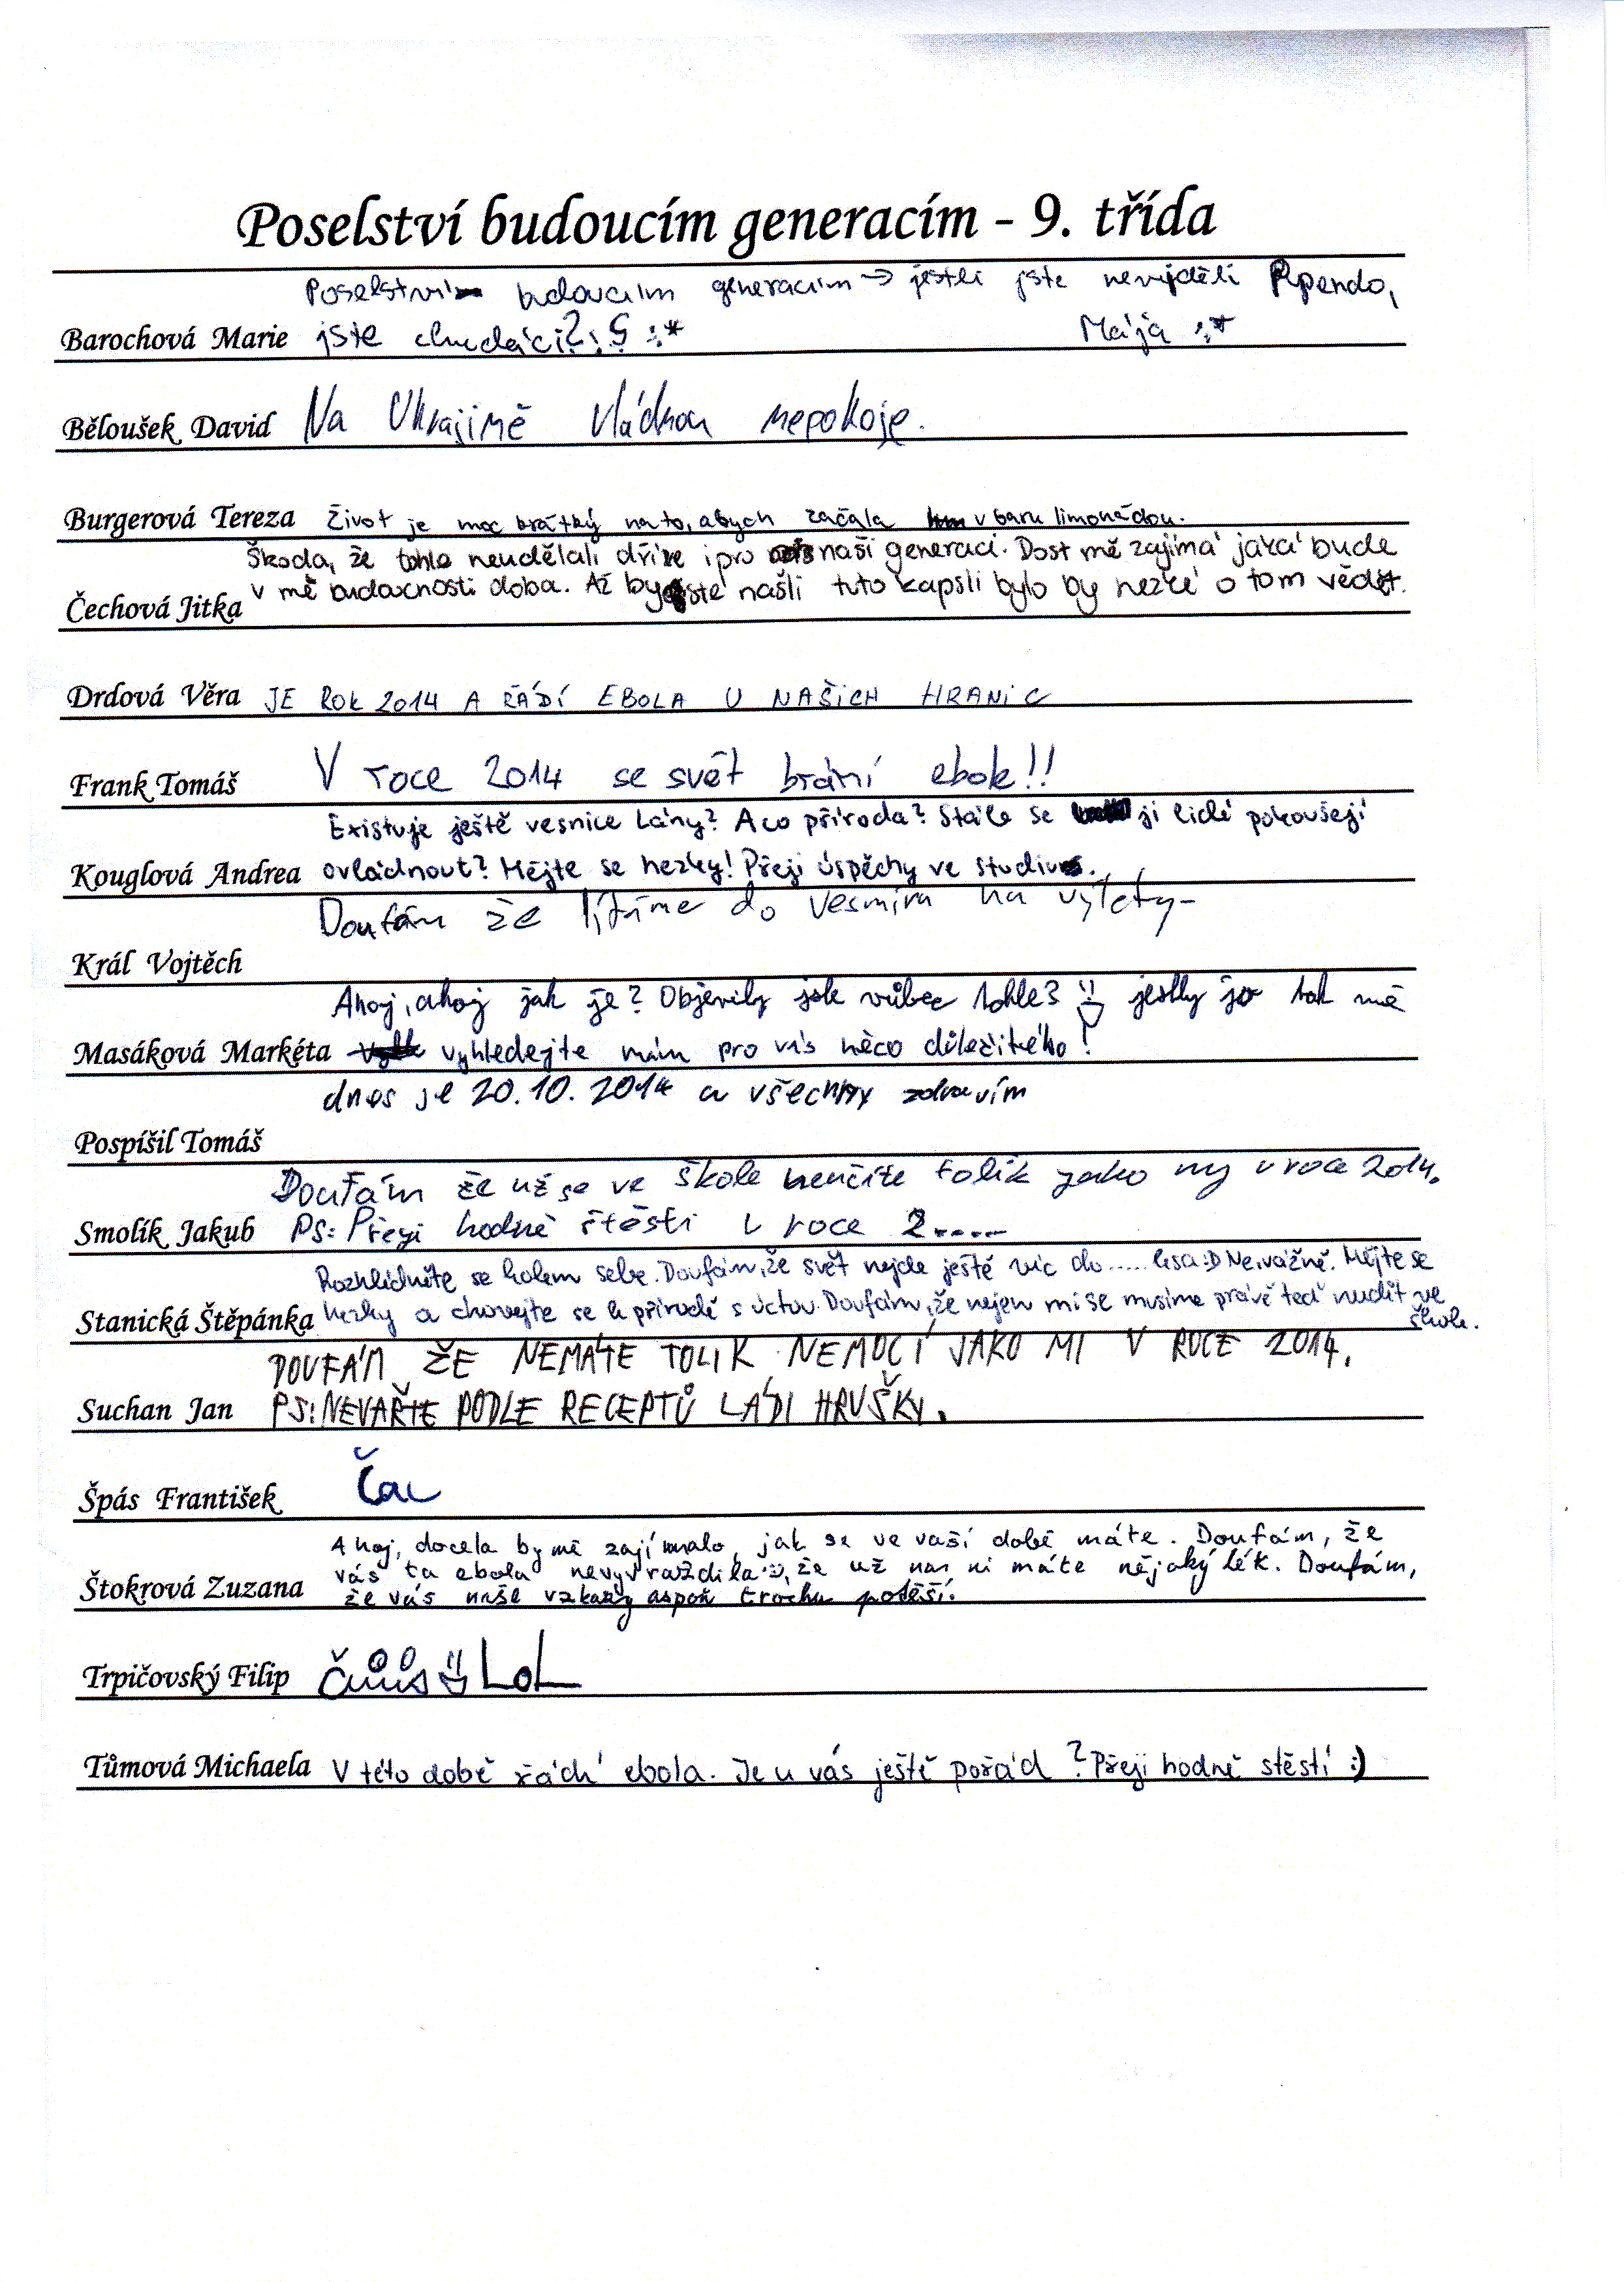 Poselství budoucím generacím - 9. třída
Poselství budoucím generacím → jestli jste nevyděli Apendo,
Barochová Marie jste chudáci?!? :* Mája :*
Běloušek David Na Ukrajině vládnou nepokoje.
Burgerová Tereza Život je moc krátký na to, abych začala v baru limonádou.
Škoda, že tohle neudělali dříve i pro naši generaci. Dost mě zajímá jaká bude
v mé budoucnosti doba. Až byjste našli tuto kapsli bylo by hezké o tom vědět.
Čechová Jitka
Drdová Věra JE ROK 2014 A ŘÁDÍ EBOLA U NAŠICH HRANIC
Frank Tomáš V roce 2014 se svět brání ebole!!
Existuje ještě vesnice Lány? A co příroda? Stále se ji lidé pokoušejí
Kouglová Andrea ovládnout? Mějte se hezky! Přeji úspěchy ve studiu.
Doufám že lítáme do vesmíru na výlety-
Král Vojtěch
Ahoj, ahoj jak je? Objevily jste vůbec tohle? jestly jo tak mě
Masáková Markéta vyhledejte mám pro vás něco důležitého!
dnes je 20.10.2014 a všechny zdravím
Pospíšil Tomáš
Doufám že už se ve škole neučíte tolik jako my v roce 2014.
Smolík Jakub PS: Přeji hodně štěstí v roce 2....
Rozhlídněte se kolem sebe. Doufám, že svět nejde ještě víc do ..... lesa :D Ne, vážně. Mějte se
Stanická Štěpánka hezky a chovejte se k přírodě s úctou. Doufám, že nejen mi se musíme právě teď nudit ve
škole.
DOUFÁM ŽE NEMÁTE TOLIK NEMOCÍ JAKO MI V ROCE 2014.
Suchan Jan PS: NEVAŘTE PODLE RECEPTŮ LÁDI HRUŠKY.
Špás František Čau
Ahoj, docela by mě zajímalo, jak se ve vaší době máte. Doufám, že
vás ta ebola nevyvraždila :), že už na ni máte nějaký lék. Doufám,
Štokrová Zuzana
že vás naše vzkazy aspoň trochu potěší.
Trpičovský Filip LoL
Tůmová Michaela V této době řádí ebola. Je u vás ještě pořád? Přeji hodně stěstí :)